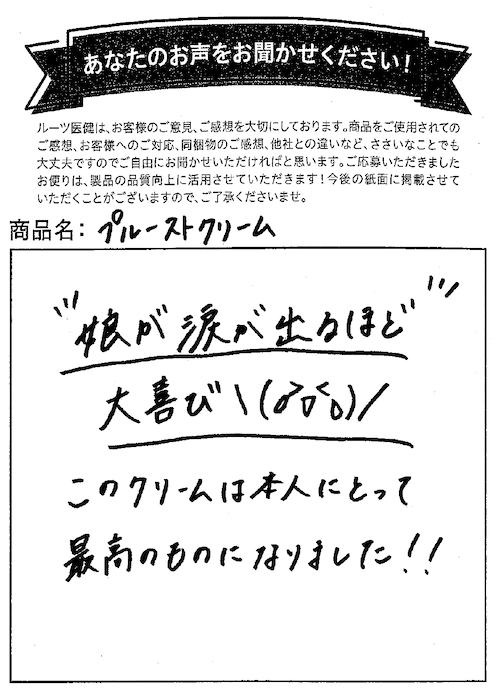 あなたのお声をお聞かせください！
ルーツ医健は、お客様のご意見、ご感想を大切にしております。商品をご使用されての
ご感想、お客様へのご対応、同梱物のご感想、他社との違いなど、ささいなことでも
大丈夫ですのでご自由にお聞かせいただければと思います。ご応募いただきました
お便りは、製品の品質向上に活用させていただきます！今後の紙面に掲載させて
いただくことがございますので、ご了承くださいませ。
商品名： プルーストクリーム
娘が涙が出るほど
大喜び \(≧▽≦)/
このクリームは本人にとって
最高のものになりました！！